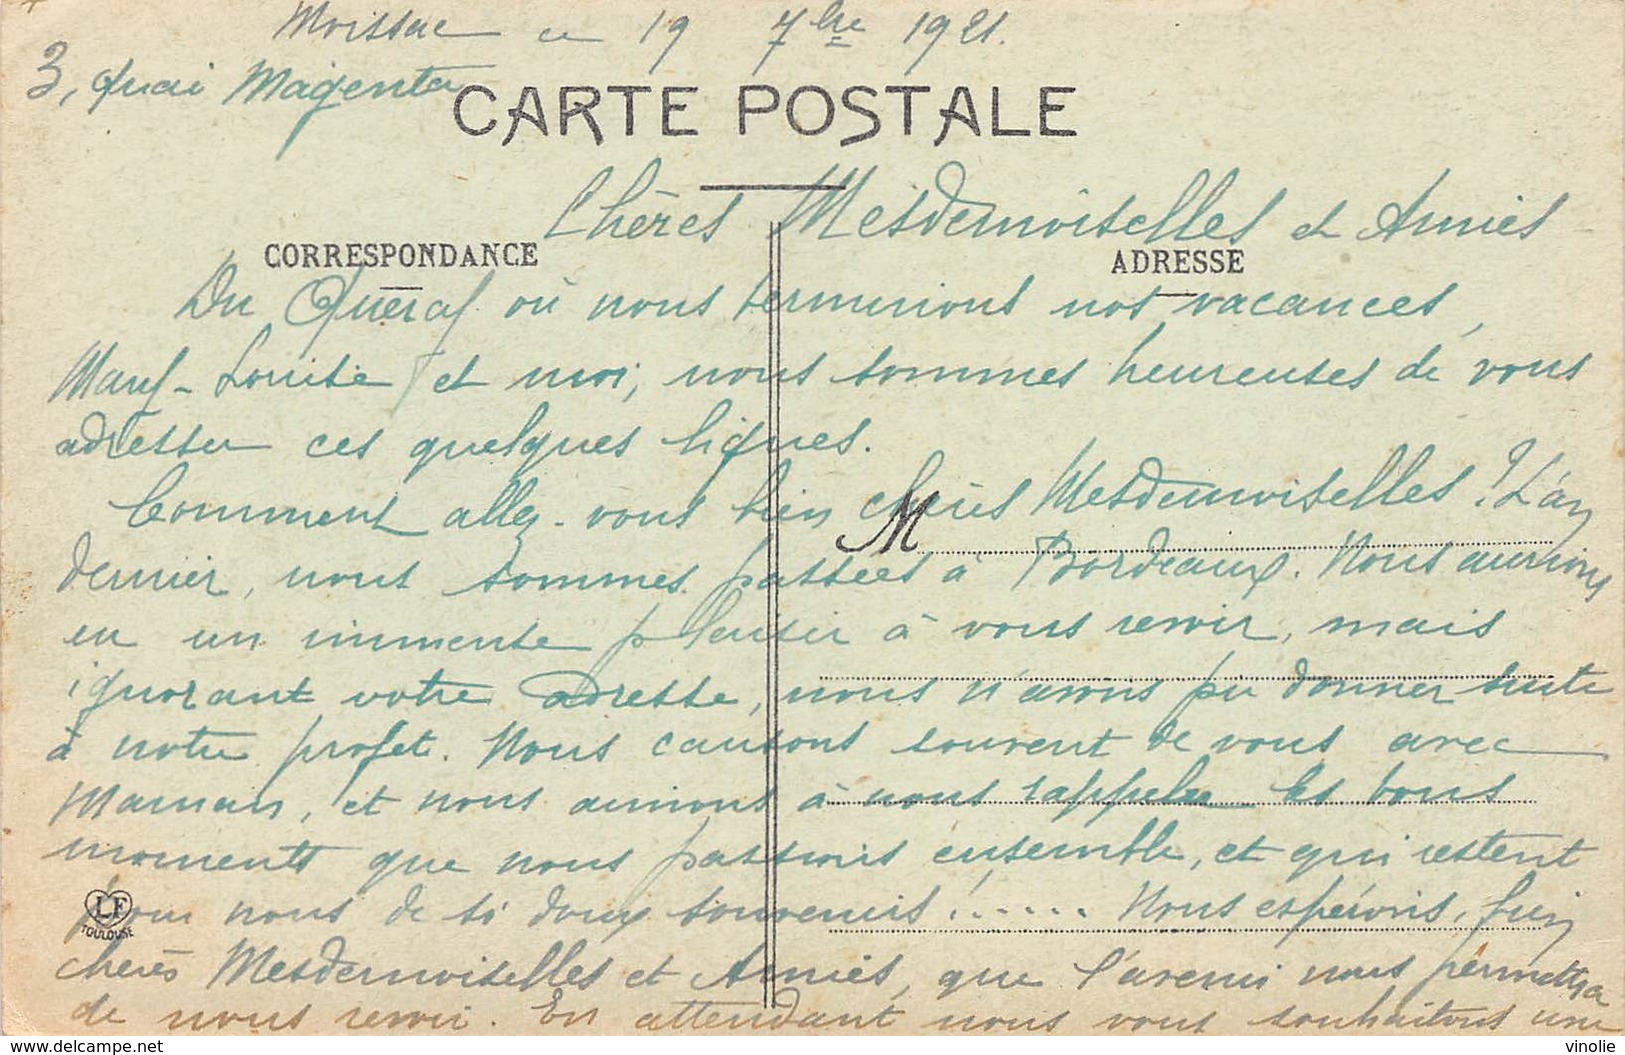 Moissac ce 19 7bre 1921.
3, Quai Magenta
CARTE POSTALE
Chères Mesdemoiselles et Amies
CORRESPONDANCE
ADRESSE
Du Quercy où nous terminions nos vacances,
Louise et moi, nous sommes heureuses de vous
adresser ces quelques lignes.
Comment allez-vous bien chères Mesdemoiselles ? L'an
M
dernier, nous sommes passées à Bordeaux. Nous aurions
eu un immense plaisir à vous revoir, mais
ignorant votre adresse, nous n'avons pu donner suite
à notre projet. Nous causons souvent de vous avec
Maman, et nous aimons à nous rappeler les bons
moments que nous passions ensemble, et qui restent
pour nous de si doux souvenirs !...... Nous espérons, bien
LF
TOULOUSE
chères Mesdemoiselles et Amies, que l'avenir nous permettra
de nous revoir. En attendant nous vous souhaitons une
www.delcampe.net
vinolie